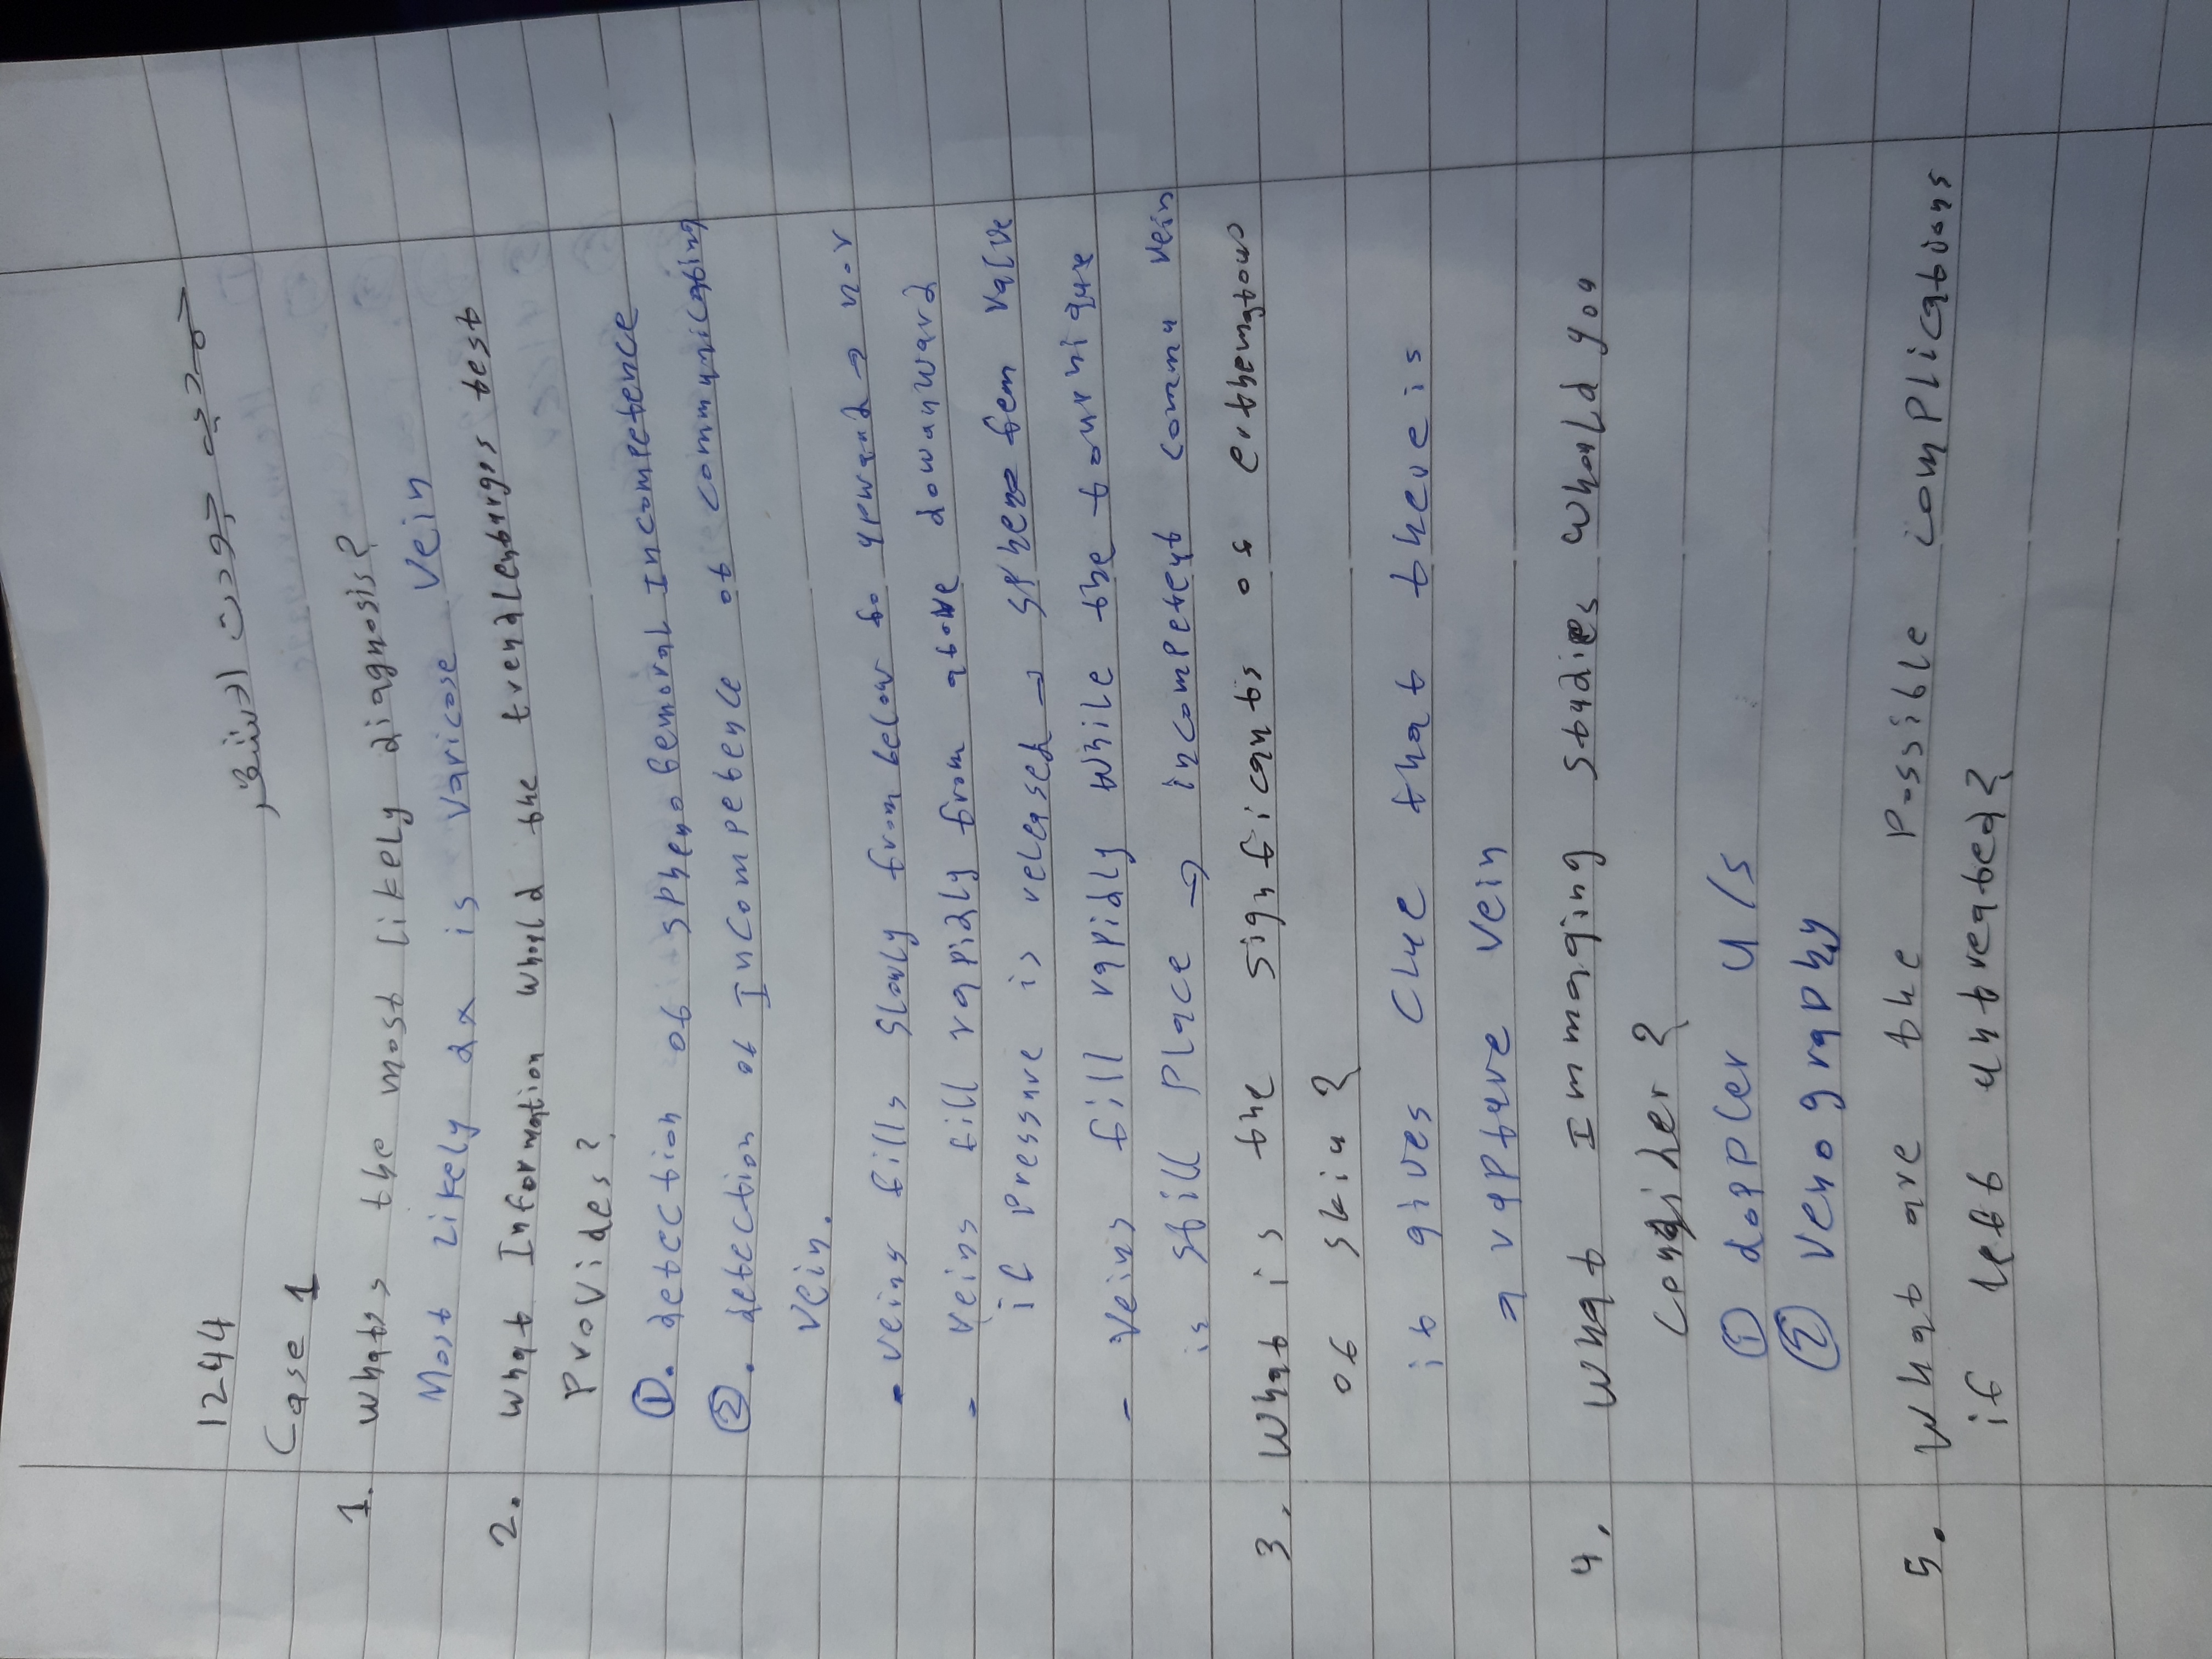 1244
Case 1
1. Whats the most likely diagnosis?
Most Likely dx is Varicose Vein
2. What Information whould the trendlenburgss test
Provides?
①. detection of spheno femoral Incompetence
②. detection of Incompetence of communicating
vein.
- veins fills slowly from below to upward → nor
- veins fill rapidly from above dowanward
if pressure is released → spheno fem valve
- Veins fill rapidly while the tourniqure
is still place → incompetent commu vein
3. What is the signficants of erthematous
of skin?
it gives Clue that there is
a rapture vein
4. What Immaging studies whould you
Consider?
① dappler u/s
② venography
5. What are the Possible complications
if left untreated?